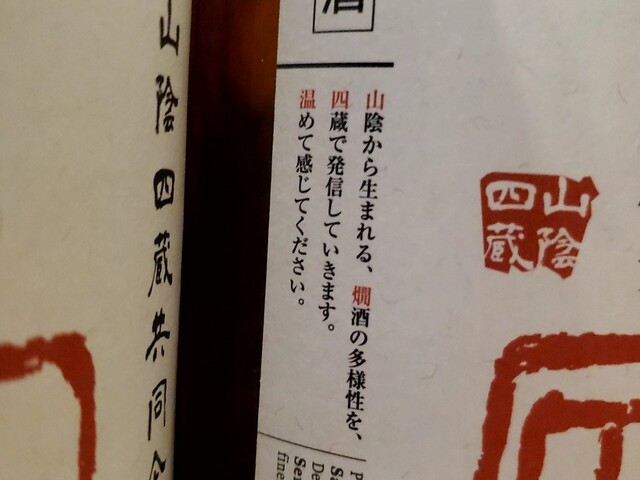 酒
山陰から生まれる、燗酒の多様性を、
四蔵で発信していきます。
温めて感じてください。
山陰
四蔵
山陰四蔵共同